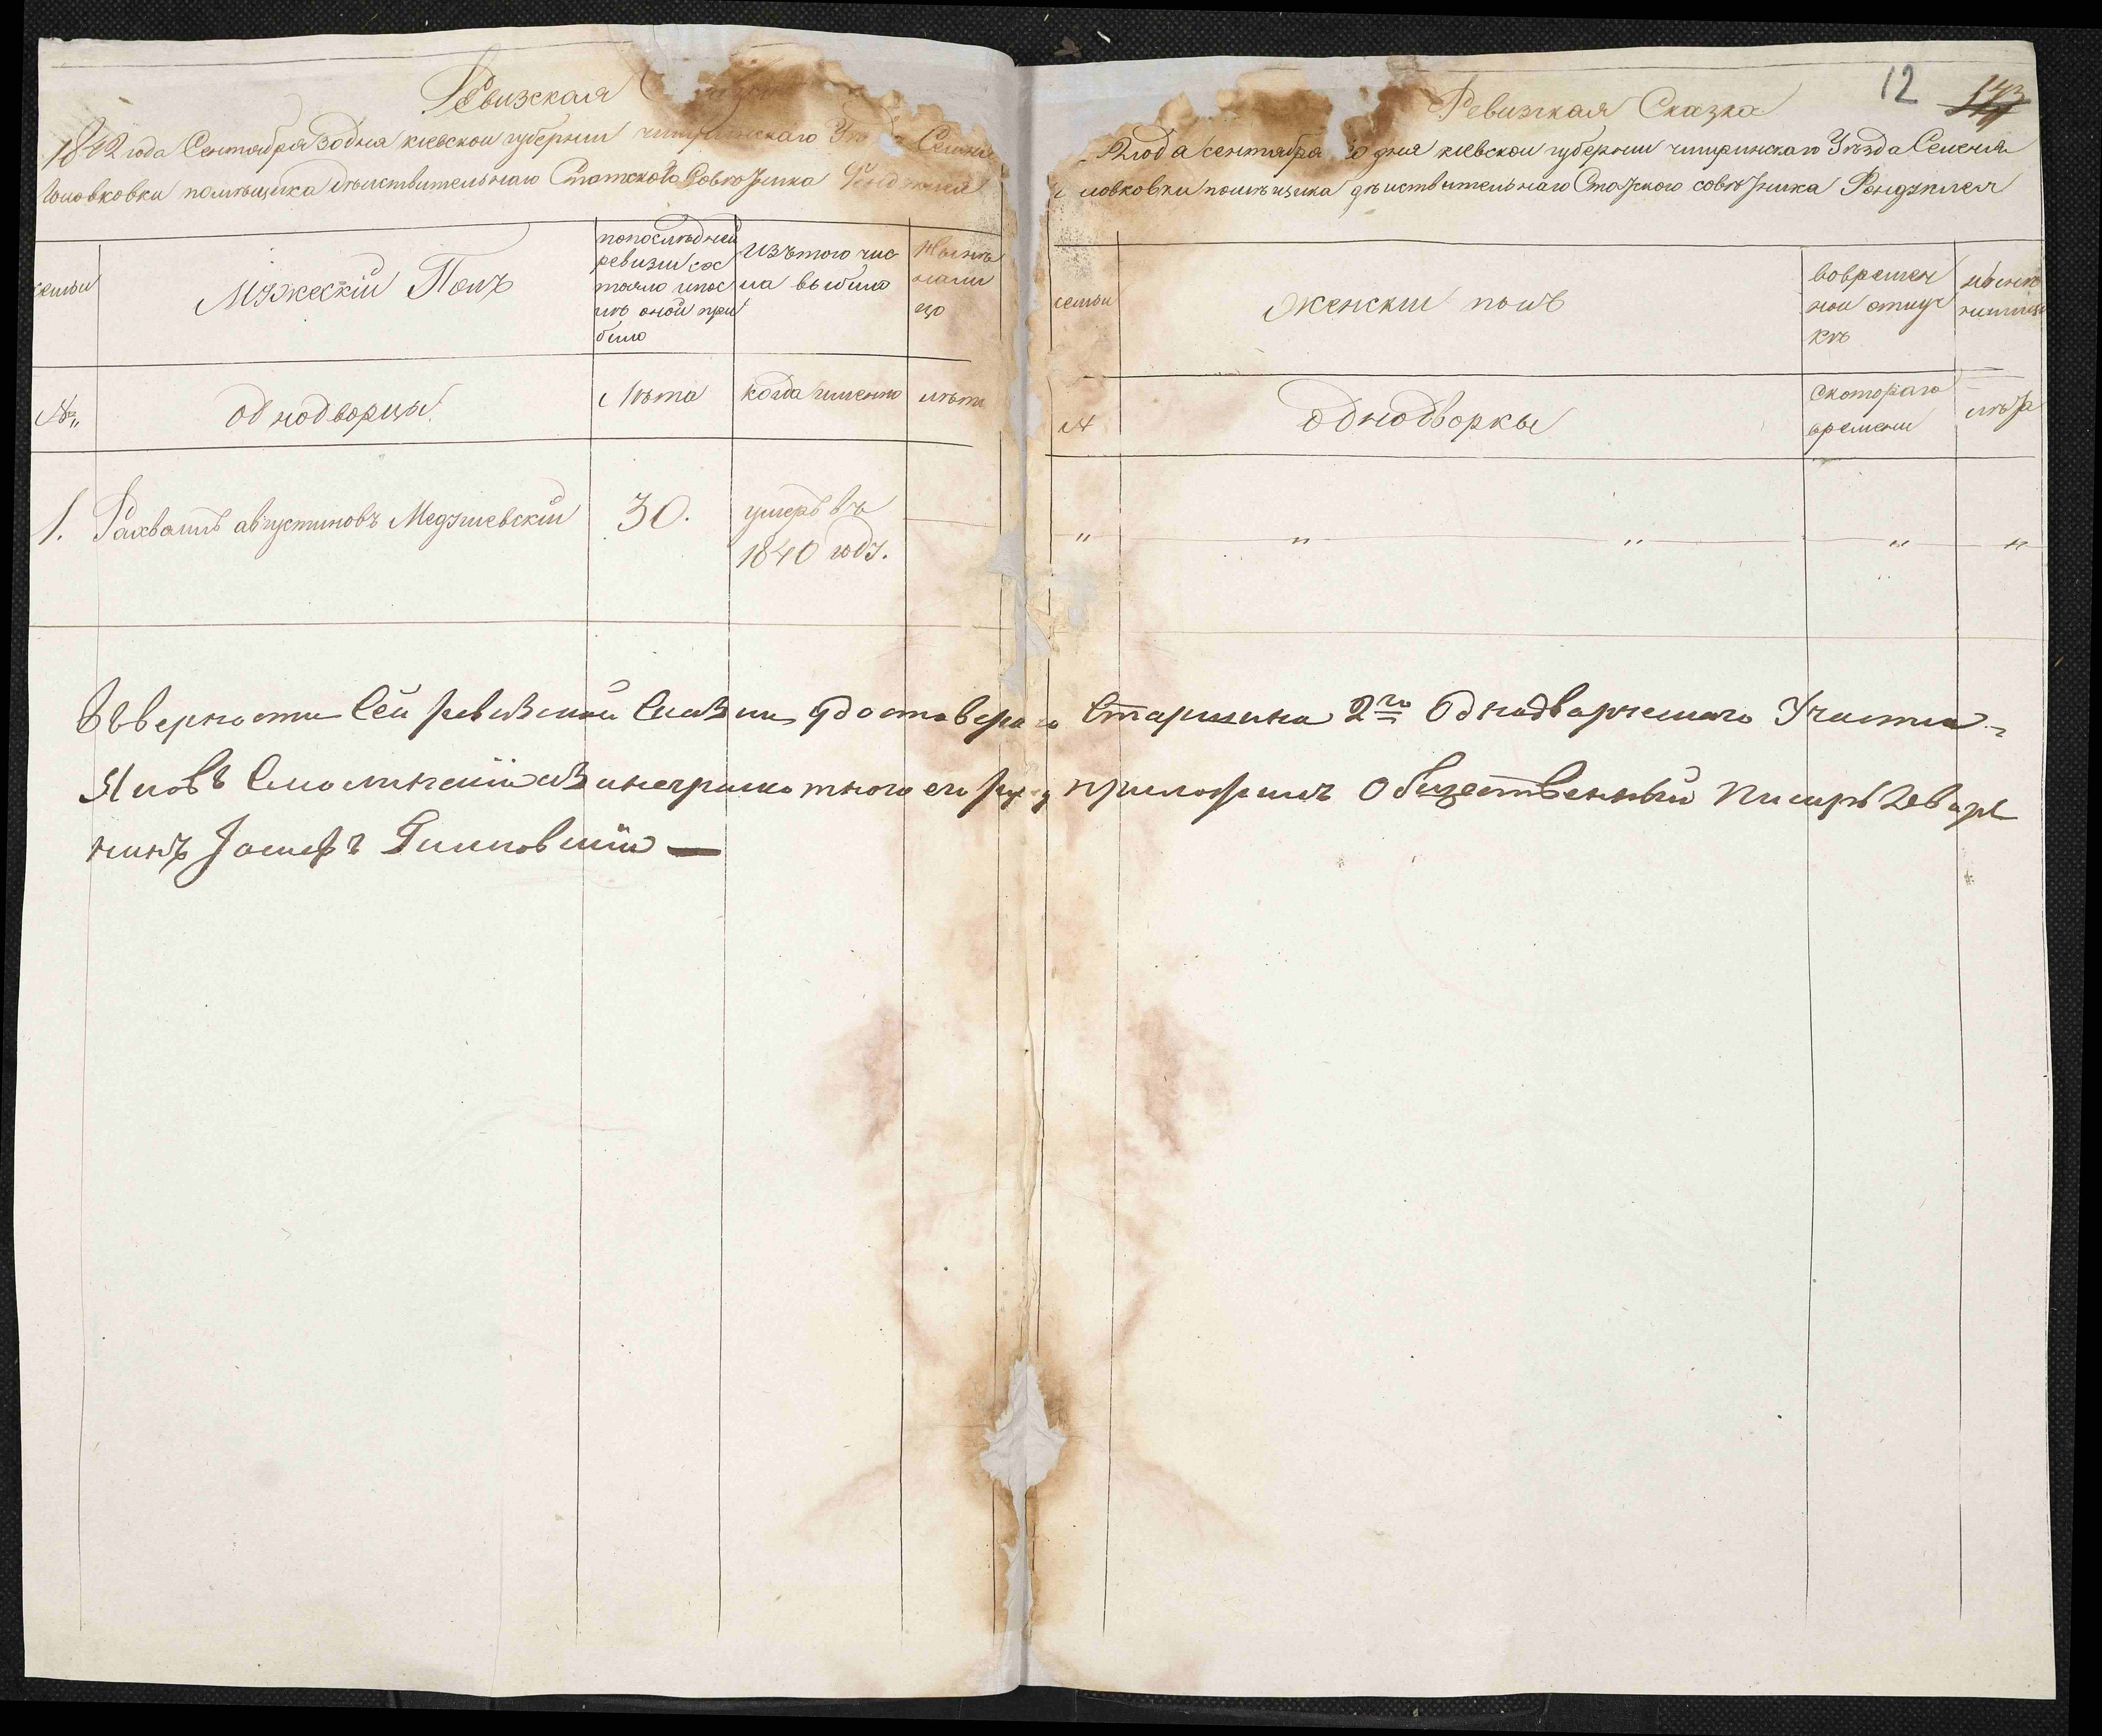 Ревизская
1842 года Сентября 30 дня киевской губернии чигиринскаго Селения
помѣщика дѣиствительнаго Статского Совѣтника
семьи
Мужескій Полъ
попослѣдней
ревизіи сос
тояло ипос
лѣ оной при
было
Изътого чис
ла выбыло
Нынѣ
нали
цо
№
однодворцы
Лѣта
когда именно
лѣта
1.
августиновъ
30.
умеръ въ
1840 году.
12
Ревизкая Сказка
года сентября дня киевскои губернии чигринскаго Уѣзда Селения
помѣщика дѣиствительнаго Статского совѣтника
семьи
женскии полъ
вовремен
нои отлуч
кѣ
нынѣ
№
однодворкы
скотораго
времени
лѣта
" " " " "
Въверности Сей ревизской Сказки Удостоверяю Старшина 2го Однодворческаго Участка
Яковъ Смолинский азанеграмотного его руку приложилъ Общественный Писарь Дваря
нинъ Іосифъ